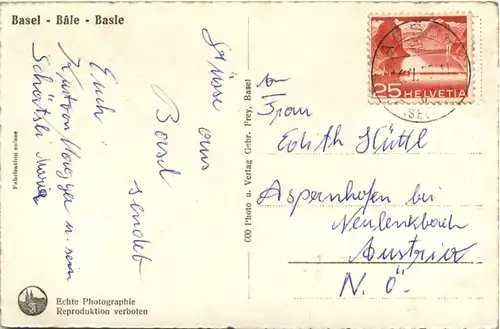 Basel - Bâle - Basle
Grüsse aus
Basel
sendet
Euch
u. sein
Maria
Fabrication suisse
Echte Photographie
Reproduktion verboten
600 Photo u. Verlag Gebr. Frey, Basel
25 HELVETIA
An
Frau
Edith Hüttl
Aspernhofen bei
Neulenkbach
Austria
N. Ö.